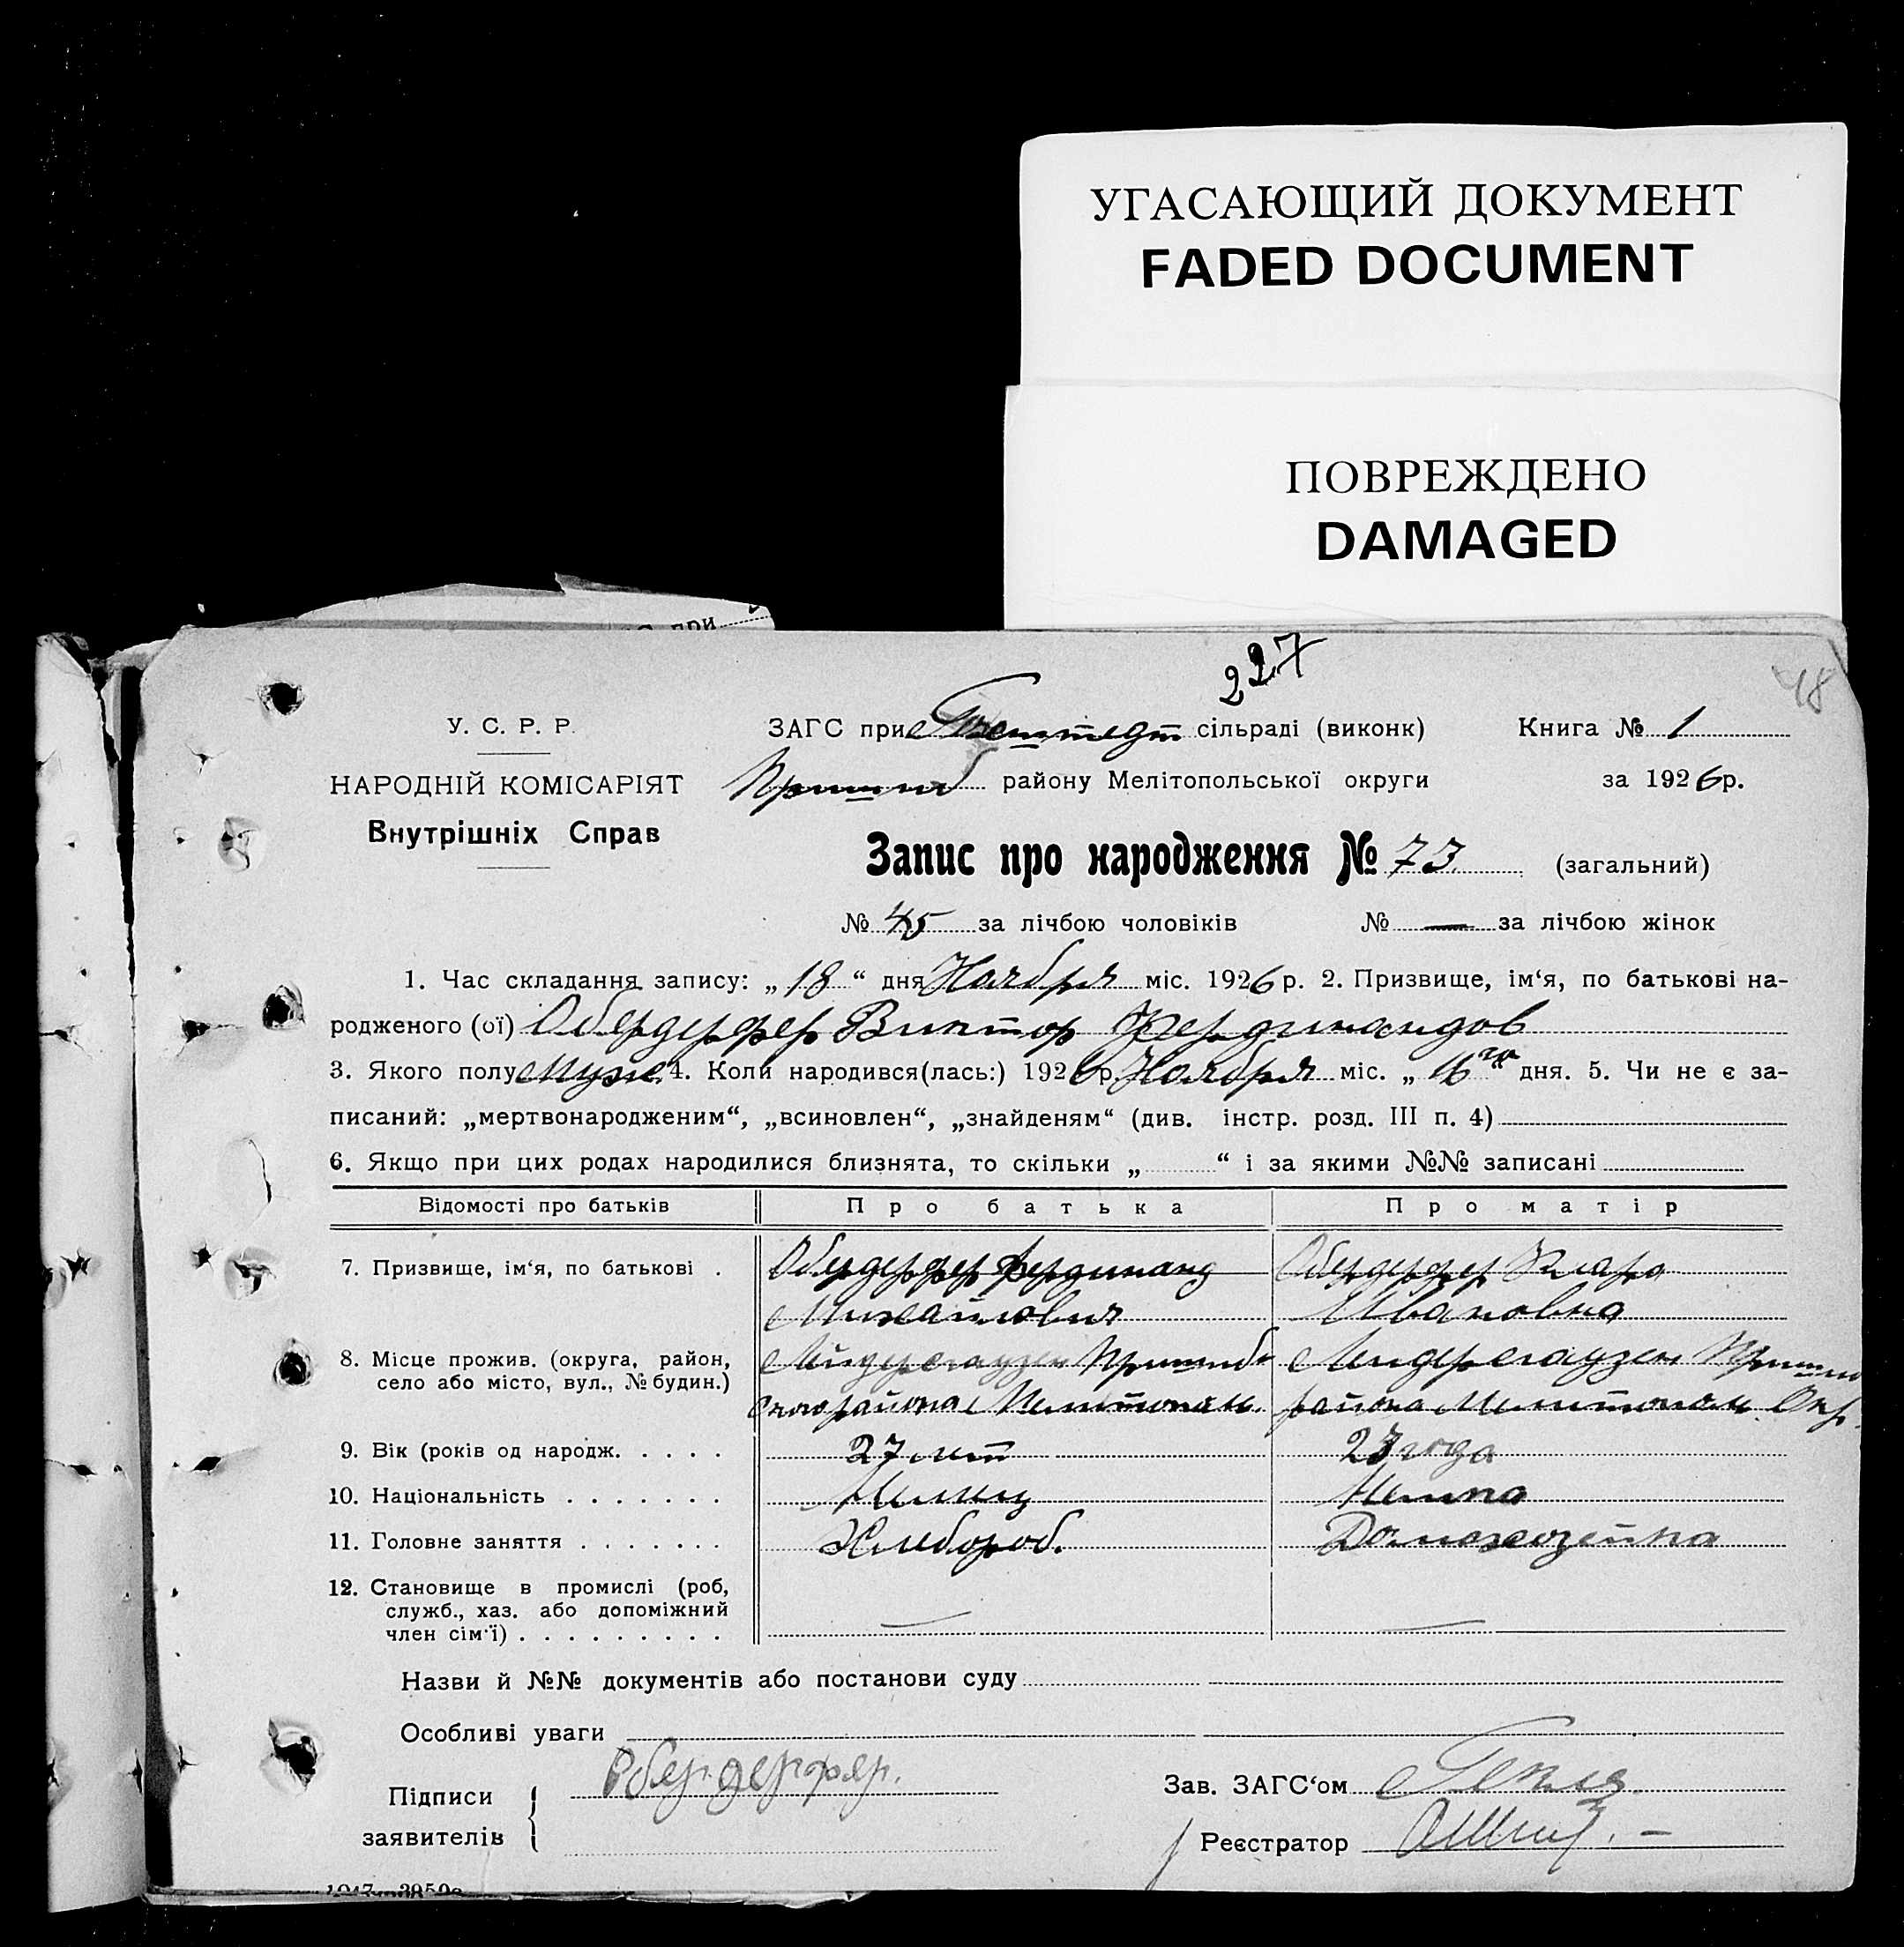 УГАСАЮЩИЙ ДОКУМЕНТ
FADED DOCUMENT
ПОВРЕЖДЕНО
DAMAGED
при
227
48
У. С. Р. Р.
ЗАГС при сільраді (виконк) Книга № 1
НАРОДНІЙ КОМІСАРІЯТ Пришиб району Мелітопольської округи за 1926р.
Внутрішніх Справ
Запис про народження № 73. (загальний)
№ 45 за лічбою чоловіків № — за лічбою жінок
1. Час складання запису: „18“ дня Ноября міс. 1926 р. 2. Призвище, ім‘я, по батькові на-
родженого (ої) Обердерфер Виктор Фердинандов
3. Якого полу муж. 4. Коли народився(лась:) 1926 р. Ноября міс. „16го“ дня. 5. Чи не є за-
писаний: „мертвонародженим“, „всиновлен“, „знайденям“ (див. інстр. розд. III п. 4)
6. Якщо при цих родах народилися близнята, то скільки „ “ і за якими №№ записані
Відомості про батьків Про батька Про матір
7. Призвище, ім‘я, по батькові . Обердерфер Фердинанд Обердерфер Клара
Михайлович Ивановна
8. Місце прожив. (округа, район, Пришиб Пришиб
село або місто, вул., № будин.)
ского района Мелитопол. района Мелитопол. Окр.
9. Вік (років од народж. . . . . 27 лет 23 года
10. Національність . . . . . . . Немец Немка
11. Головне заняття . . . . . . . Хлебороб. Домохозейка
12. Становище в промислі (роб, — —
служб., хаз. або допоміжний
член сім‘ї) . . . . . . . . .
Назви й №№ документів або постанови суду
Особливі уваги
Підписи Обердерфер. Зав. ЗАГС‘ом
заявителів Реєстратор